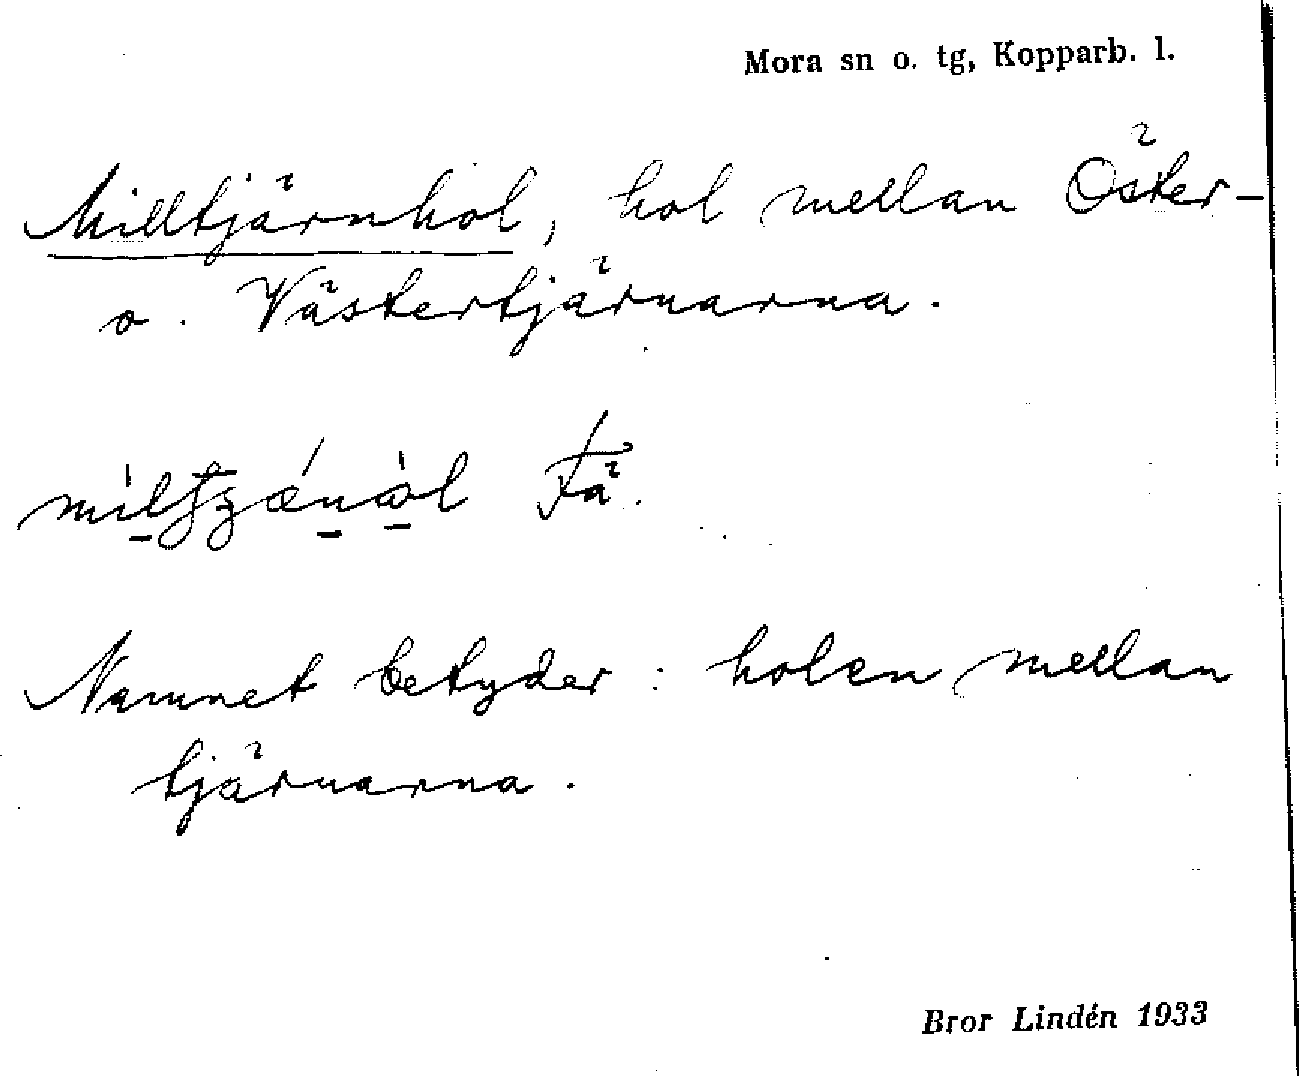 Mora sn o. tg, Kopparb. l.
Milltjärnhol, hol mellan Öster-
o. Västertjärnarna.
Få.
Namnet betyder: holen mellan
tjärnarna.
Bror Lindén 1933